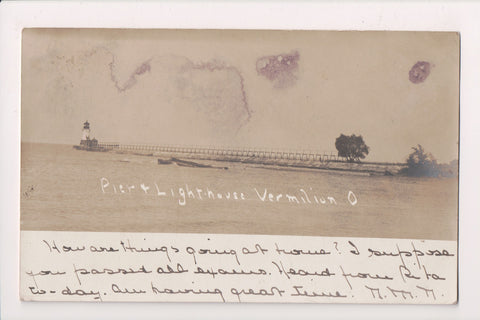 Pier & Lighthouse Vermilion O
How are things going at home? I suppose
you passed all exams. Heard from Rita
to-day. Am having great time! N.M.N.